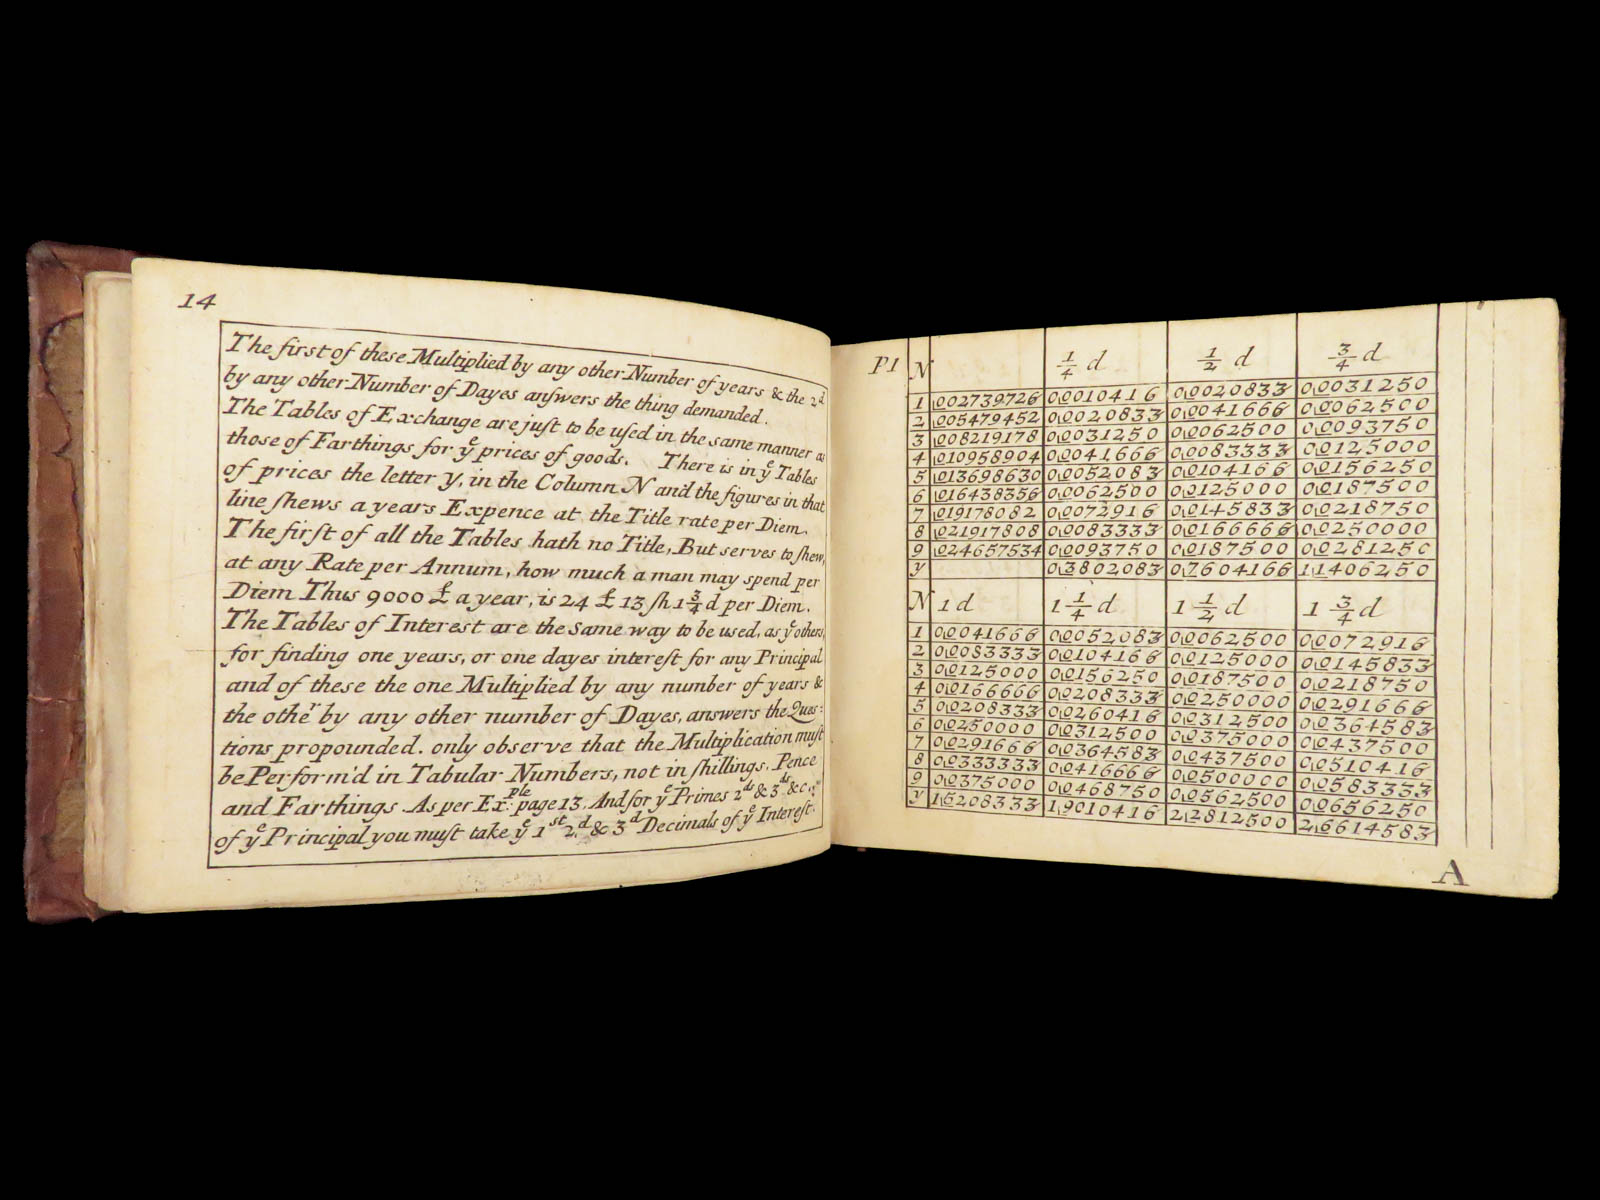 14
The first of these Multiplied by any other Number of years & the 2d
by any other Number of Dayes anſwers the thing demanded.
The Tables of Exchange are juſt to be uſed in the same manner as
those of Farthings for ye prices of goods. There is in ye Tables
of prices the letter y, in the Column N and the figures in that
line ſhews a years Expence at the Title rate per Diem.
The firſt of all the Tables hath no Title, But serves to ſhew,
at any Rate per Annum, how much a man may spend per
Diem Thus 9000 £ a year, is 24 £ 13 ſh 1 3/4 d per Diem.
The Tables of Interest are the same way to be used, as ye others,
for finding one years, or one dayes intereſt for any Principal
and of these the one Multiplied by any number of years &
the other by any other number of Dayes, answers the Ques:
tions propounded. only observe that the Multiplication muſt
be Perform'd in Tabular Numbers, not in ſhillings. Pence
and Farthings. As per Ex:ple page 13. And for ye Primes 2ds & 3ds &c.
of ye Principal you muſt take ye 1st 2d & 3d Decimals of ye Intereſt.
P1 N 1/4 d 1/2 d 3/4 d
1 ,002739726 0,0010416 0,0020833 0,0031250
2 ,005479452 0,0020833 0,0041666 0,0062500
3 ,008219178 0,0031250 0,0062500 0,0093750
4 ,010958904 0,0041666 0,0083333 0,0125000
5 ,013698630 0,0052083 0,0104166 0,0156250
6 ,016438356 0,0062500 0,0125000 0,0187500
7 ,019178082 0,0072916 0,0145833 0,0218750
8 ,021917808 0,0083333 0,0166666 0,0250000
9 ,024657534 0,0093750 0,0187500 0,0281250
y 0,3802083 0,7604166 1,1406250
N 1 d 1 1/4 d 1 1/2 d 1 3/4 d
1 0,0041666 0,0052083 0,0062500 0,0072916
2 0,0083333 0,0104166 0,0125000 0,0145833
3 0,0125000 0,0156250 0,0187500 0,0218750
4 0,0166666 0,0208333 0,0250000 0,0291666
5 0,0208333 0,0260416 0,0312500 0,0364583
6 0,0250000 0,0312500 0,0375000 0,0437500
7 0,0291666 0,0364583 0,0437500 0,0510416
8 0,0333333 0,0416666 0,0500000 0,0583333
9 0,0375000 0,0468750 0,0562500 0,0656250
y 1,5208333 1,9010416 2,2812500 2,6614583
A